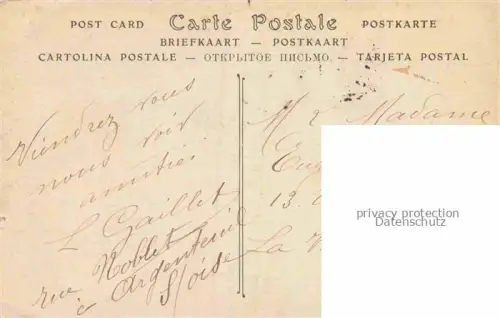 POST CARD Carte Postale POSTKARTE
BRIEFKAART — POSTKAART
CARTOLINA POSTALE — ОТКРЫТОЕ ПИСЬМО — TARJETA POSTAL
Viendrez vous
nous voir
amitié.
L Gaillet
rue Noblet
à Argenteuil
S/oise
M & Madame
13.
La
privacy protection
Datenschutz